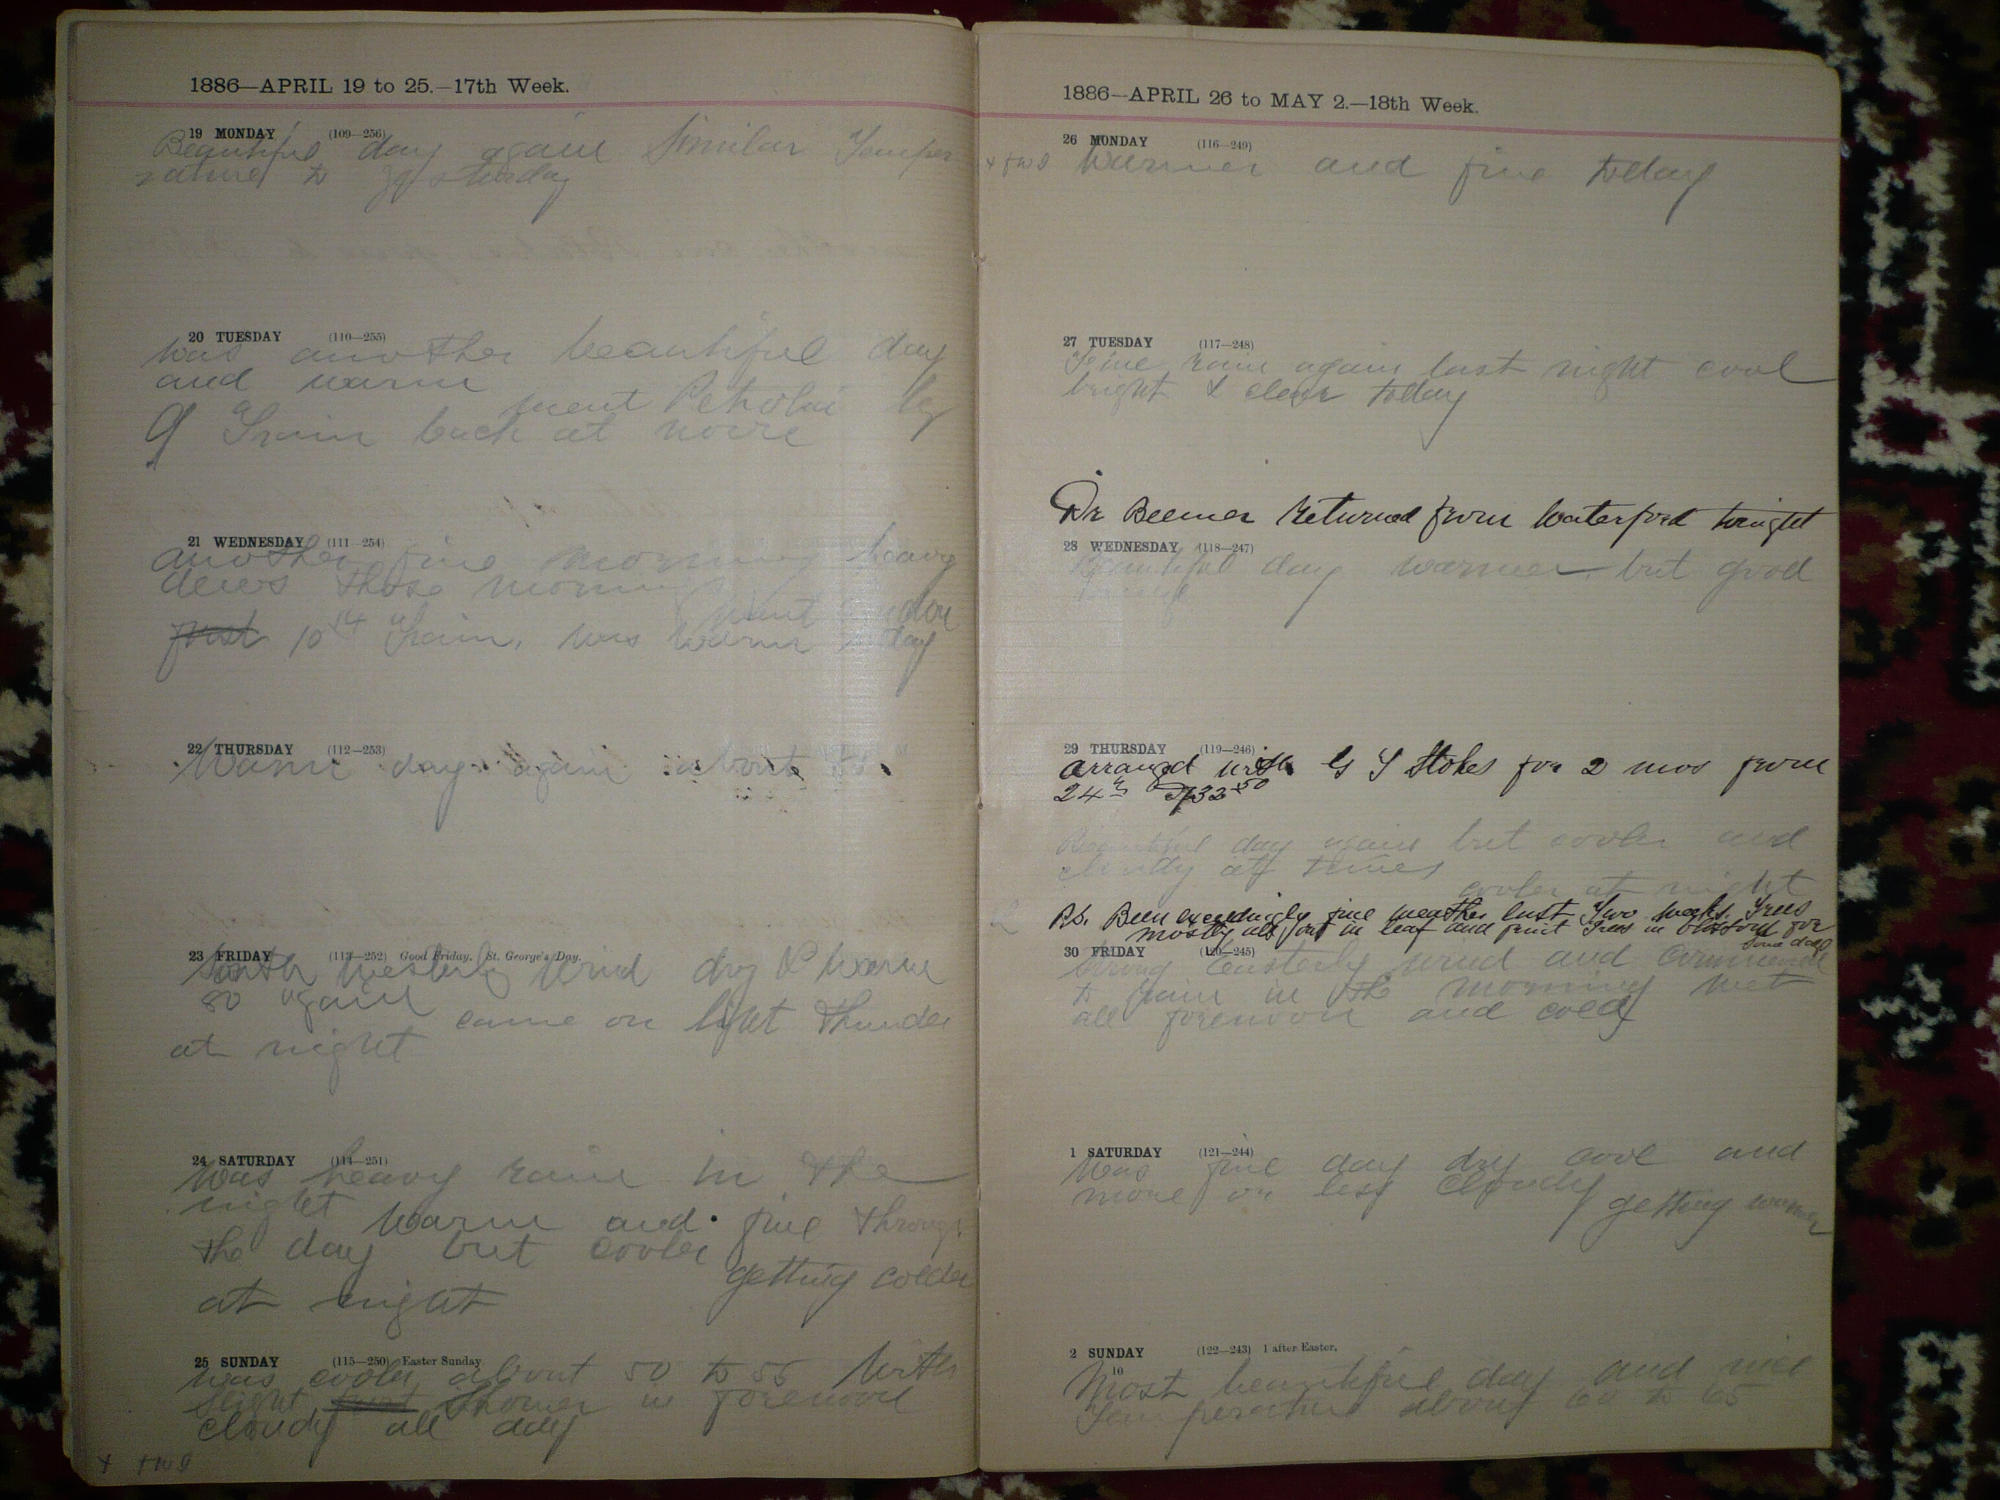 1886—APRIL 19 to 25.—17th Week.
19 MONDAY (109—256)
Beautiful day again Similar Temper
rature to yesterday
20 TUESDAY (110—255)
Was another beautiful day
and warm
went Petrolia by
9 Train back at
21 WEDNESDAY (111—254)
another fine morning heavy
dews those
went London
10 Train, was warm day
22 THURSDAY (112—253)
Warm day again about
23 FRIDAY (113—252) Good Friday. St. George's Day.
South Westerly Wind dry & Warm
80 again
came on light Thunder
at night
24 SATURDAY (114—251)
Was heavy rain in the
night
Warm and fine through
the day but cooler
getting colder
at night
25 SUNDAY (115—250) Easter Sunday
Was cooler about 50 to 55 With
slight shower in forenoon
cloudy all day
1886—APRIL 26 to MAY 2.—18th Week.
26 MONDAY (116—249)
Warmer and fine today
27 TUESDAY (117—248)
Fine rain again last night cool
bright & clear today
Dr Beemer Returned from Waterford tonight
28 WEDNESDAY (118—247)
Beautiful day warmer but good
29 THURSDAY (119—246)
arranged with G S Stokes for 2 mos from
24th 32 50
Beautiful day again but cooler and
cloudy at times
cooler at night
P.S. Been exceedingly fine weather last Two weeks. Trees
mostly all out in leaf and fruit Trees in blossom for
some days
30 FRIDAY (120—245)
Strong Easterly wind and commenced
to rain in the morning wet
all forenoon and cold
1 SATURDAY (121—244)
Was fine day dry cool and
more or less cloudy
getting warmer
2 SUNDAY (122—243) 1 after Easter.
10
Most beautiful day and nice
Temperature about 60 to 65